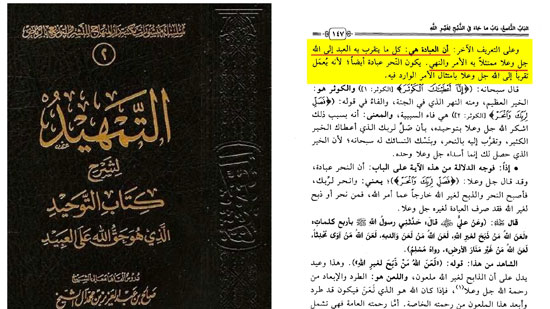 التمهيد
لشرح
كتاب التوحيد
الذي هو حق الله على العبيد
صالح بن عبد العزيز بن محمد آل الشيخ
الباب التاسع: باب ما جاء في الذبح لغير الله
١٤٧
وعلى التعريف الآخر: أن العبادة هي: كل ما يتقرب به العبد إلى الله
جل وعلا ممتثلاً به الأمر والنهي. يكون النحر عبادة أيضاً؛ لأنه يُعمل
تقرباً إلى الله جل وعلا بامتثال الأمر الوارد فيه.
قال سبحانه: ﴿إِنَّا أَعْطَيْنَاكَ الْكَوْثَرَ﴾ [الكوثر: ١] والكوثر هو:
الخير العظيم، ومنه النهر الذي في الجنة، والفاء في قوله: ﴿فَصَلِّ
لِرَبِّكَ وَانْحَرْ﴾ [الكوثر: ٢] هي فاء السببية، والمعنى: أنه بسبب ذلك
اشكر الله جل وعلا بتوحيده، بأن صلِّ لربك الذي أعطاك الخير
الكثير، وتقرَّب إليه بالنحر، وبنُسُك النسائك له سبحانه؛ لأن الخير
الذي حصل لك إنما أسداه جل وعلا وحده.
• إذاً: فوجه الدلالة من هذه الآية على الباب: أن النحر عبادة،
وقد قال جل وعلا: ﴿فَصَلِّ لِرَبِّكَ وَانْحَرْ﴾؛ يعني: وانحر لربك،
فأصبح النحر والذبح لغير الله خارجاً عما أمر الله، فمن نحر أو ذبح
لغير الله فقد صرف العبادة لغيره جل وعلا.
قوله: (وَعَنْ عَلِيٍّ قال: حَدَّثَنِي رسولُ الله ﷺ بأربع كلماتٍ:
«لَعَنَ اللهُ مَنْ ذَبَحَ لِغَيْرِ اللهِ، لَعَنَ اللهُ مَنْ لَعَنَ وَالِدَيْهِ، لَعَنَ اللهُ مَنْ آوَى مُحْدِثاً،
لَعَنَ اللهُ مَنْ غَيَّرَ مَنَارَ الأَرْضِ». رواه مُسْلِمٌ).
الشاهد من هذا: قوله: («لَعَنَ اللهُ مَنْ ذَبَحَ لِغَيْرِ الله») وهذا وعيد
يدل على أن الذابح لغير الله ملعون، واللعن هو: الطرد والإبعاد من
رحمة الله جل وعلا(١)، فإذا كان الله هو الذي لَعَنَ فيكون قد طرد
وأبعد هذا الملعون من رحمته الخاصة. أمَّا رحمته العامة فهي تشمل